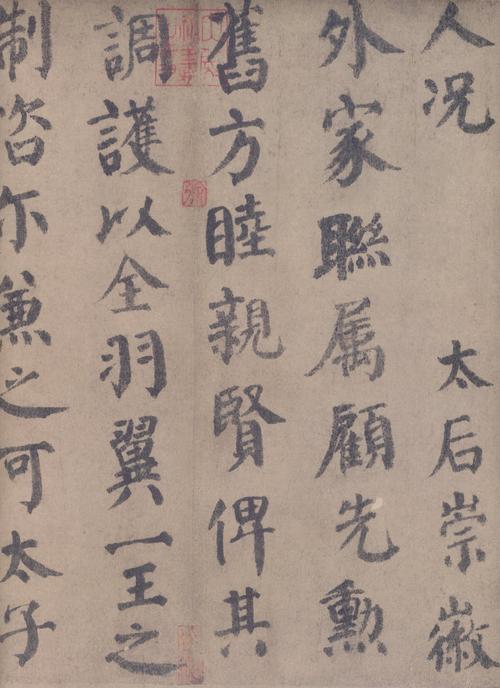 人況 太后崇徽
外家聯属顧先勳
舊方睦親賢俾其
調護以全羽翼一王之
制咨尔兼之可太子